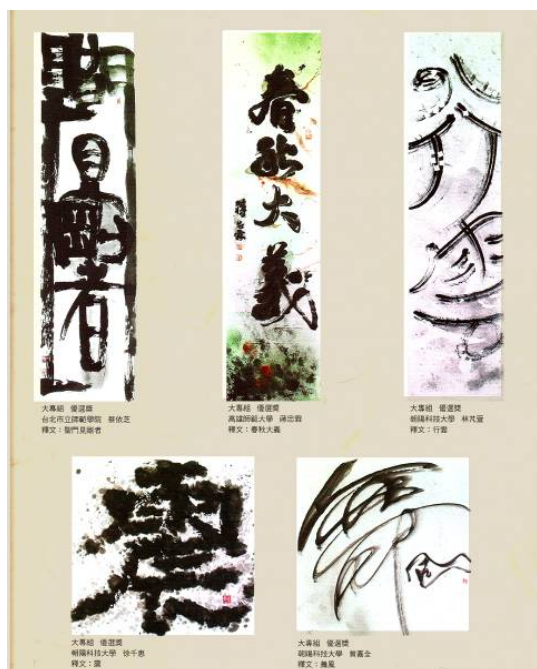 春秋大義
大專組 優選獎
台北市立師範學院 蔡依芝
釋文：聖門見剛者
大專組 優選獎
高雄師範大學
釋文：春秋大義
大專組 優選獎
朝陽科技大學 林芃萱
釋文：行雲
大專組 優選獎
朝陽科技大學 徐千惠
釋文：
大專組 優選獎
朝陽科技大學
釋文：舞風